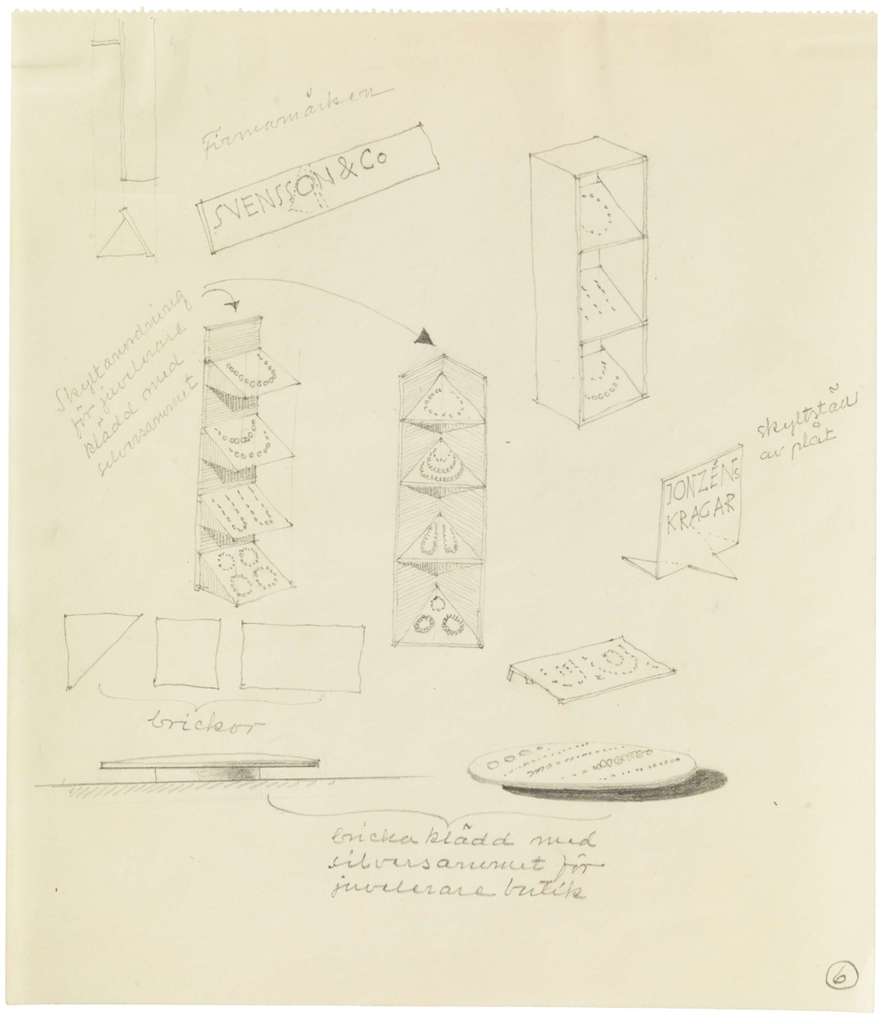 Firmamärken
SVENSSON & Co
Skyltanordning
för juvelerare
klädd med
silversammet
skyltställ
av plåt
JONZÉNs
KRAGAR
brickor
bricka klädd med
silversammet för
juvelerare butik
6